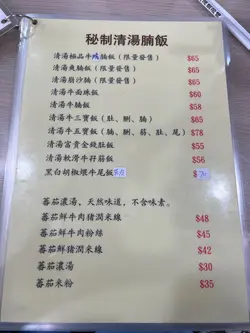 秘制清湯腩飯
清湯極品牛爽腩飯(限量發售) $65
清湯爽腩飯(限量發售) $65
清湯崩沙腩(限量發售) $65
清湯牛面珠飯 $60
清湯牛腩飯 $58
清湯牛三寶飯(肚、腸、腩) $65
清湯牛五寶飯(腩、腸、筋、肚、尾) $78
清湯富貴金錢肚飯 $55
清湯軟滑牛孖筋飯 $56
黑白胡椒煨牛尾飯 $
蕃茄濃湯、天然味道,不含味素。
蕃茄鮮牛肉豬潤米線 $48
蕃茄鮮牛肉粉絲 $45
蕃茄鮮豬潤米線 $42
蕃茄濃湯 $30
蕃茄米粉 $35